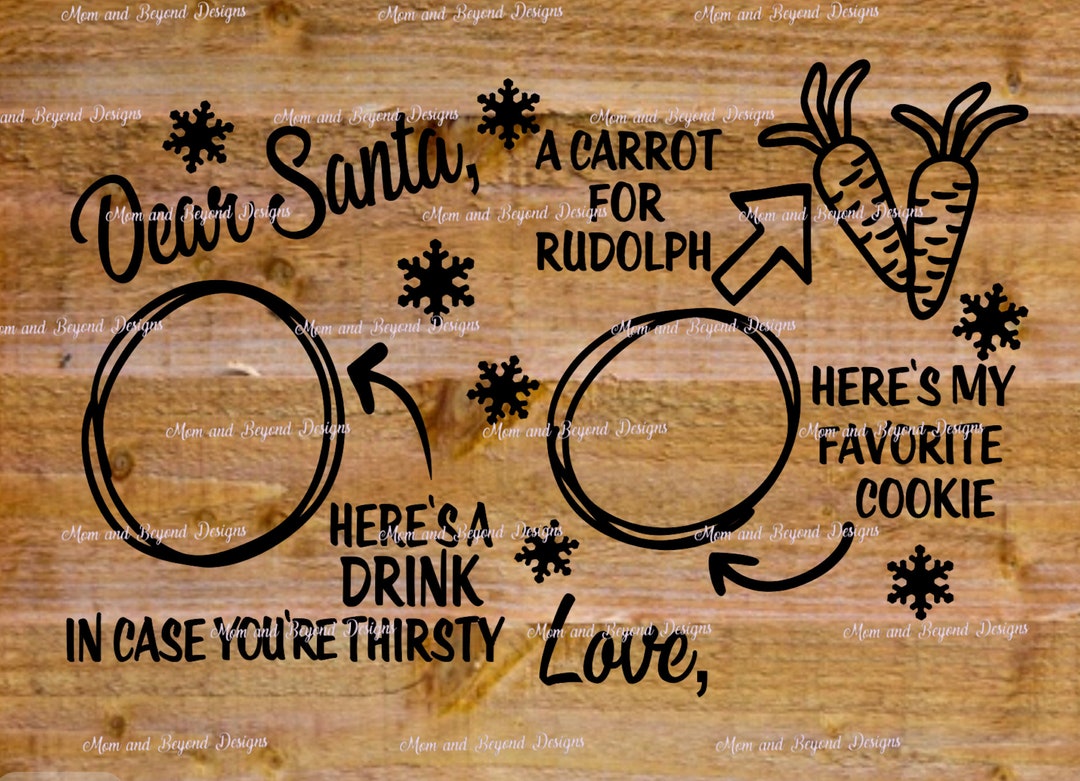 Mom and Beyond Designs
Mom and Beyond Designs
Mom and Beyond Designs
and Beyond Designs
Mom and Beyond Designs
Mom and Beyond Designs
Dear Santa,
A CARROT
FOR
RUDOLPH
Mom and Beyond Designs
Mom and Beyond Designs
Mom and Beyond Designs
om and Beyond Designs
Mom and Beyond Designs
Mom and Beyond Designs
HERE'S MY
FAVORITE
COOKIE
Mom and Beyond Designs
Mom and Beyond Designs
Mom and Beyond Designs
HERE'S A
DRINK
IN CASE YOU'RE THIRSTY
Mom and Beyond Designs
Mom and Beyond Designs
Mom and Beyond Designs
Love,
Mom and Beyond Designs
Mom and Beyond Designs
Mom and Beyond Designs
Mom and Beyond Designs
Mom and Beyond Designs
Mom and Beyond Designs